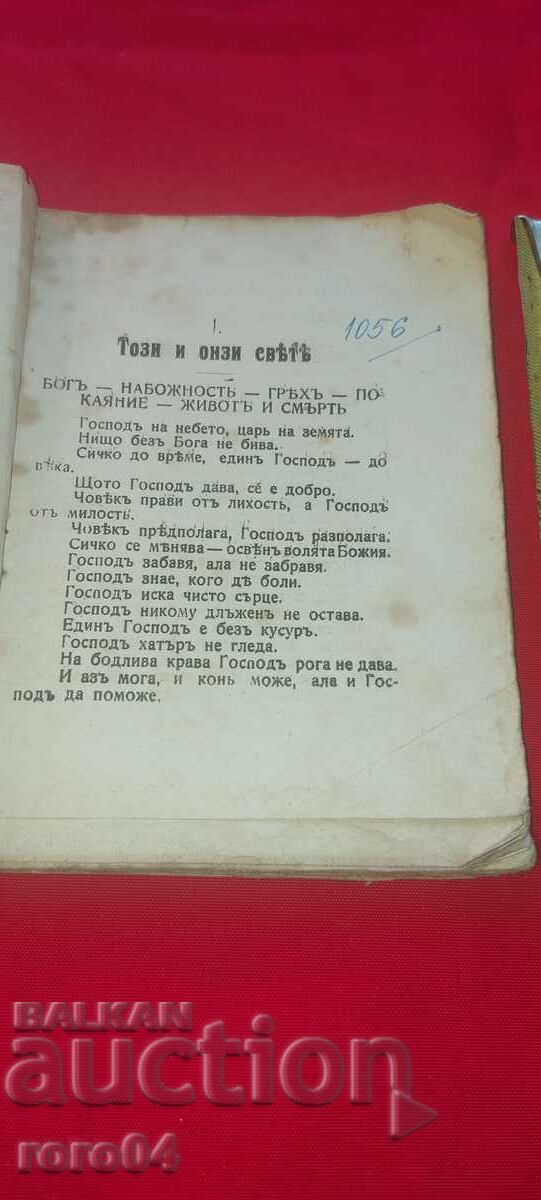 I.
1056
Този и онзи свѣтъ
БОГЪ — НАБОЖНОСТЬ — ГРѢХЪ — ПО-
КАЯНИЕ — ЖИВОТЪ И СМЪРТЬ
Господъ на небето, царь на земята.
Нищо безъ Бога не бива.
Сичко до врѣме, единъ Господъ — до
вѣка.
Щото Господъ дава, се е добро.
Човѣкъ прави отъ лихость, а Господъ
отъ милость.
Човѣкъ прѣдполага, Господъ разполага.
Сичко се мѣнява — освѣнъ волята Божия.
Господъ забавя, ала не забравя.
Господъ знае, кого дѣ боли.
Господъ иска чисто сърце.
Господъ никому длъженъ не остава.
Единъ Господъ е безъ кусуръ.
Господъ хатъръ не гледа.
На бодлива крава Господъ рога не дава.
И азъ мога, и конь може, ала и Гос-
подъ да поможе.
BALKAN
auction
roro04